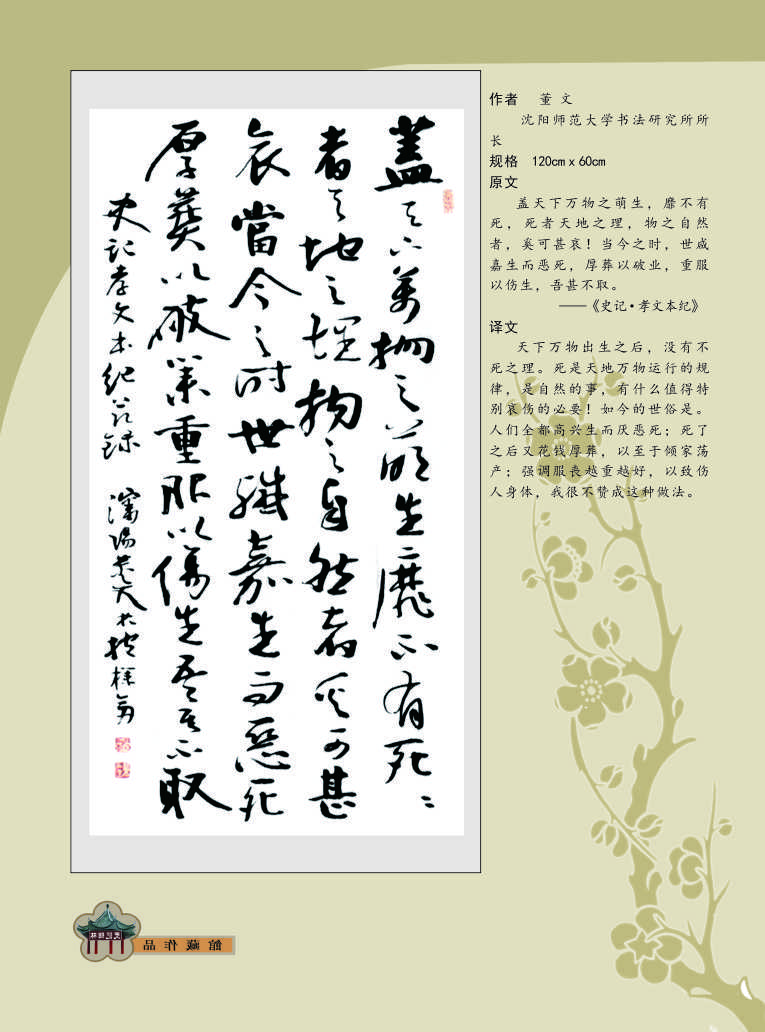 蓋天下萬物之萌生靡不有死〻
者天地之理物之自然者奚可甚
哀當今之時世咸嘉生而惡死
厚葬以破業重服以傷生吾甚不取
史記孝文本紀节録 瀋陽董文於
作者 董 文
沈阳师范大学书法研究所所
长
规格 120cm x 60cm
原文
盖天下万物之萌生，靡不有
死，死者天地之理，物之自然
者，奚可甚哀！当今之时，世咸
嘉生而恶死，厚葬以破业，重服
以伤生，吾甚不取。
——《史记·孝文本纪》
译文
天下万物出生之后，没有不
死之理。死是天地万物运行的规
律，是自然的事，有什么值得特
别哀伤的必要！如今的世俗是。
人们全都高兴生而厌恶死；死了
之后又花钱厚葬，以至于倾家荡
产；强调服丧越重越好，以致伤
人身体，我很不赞成这种做法。
館藏作品